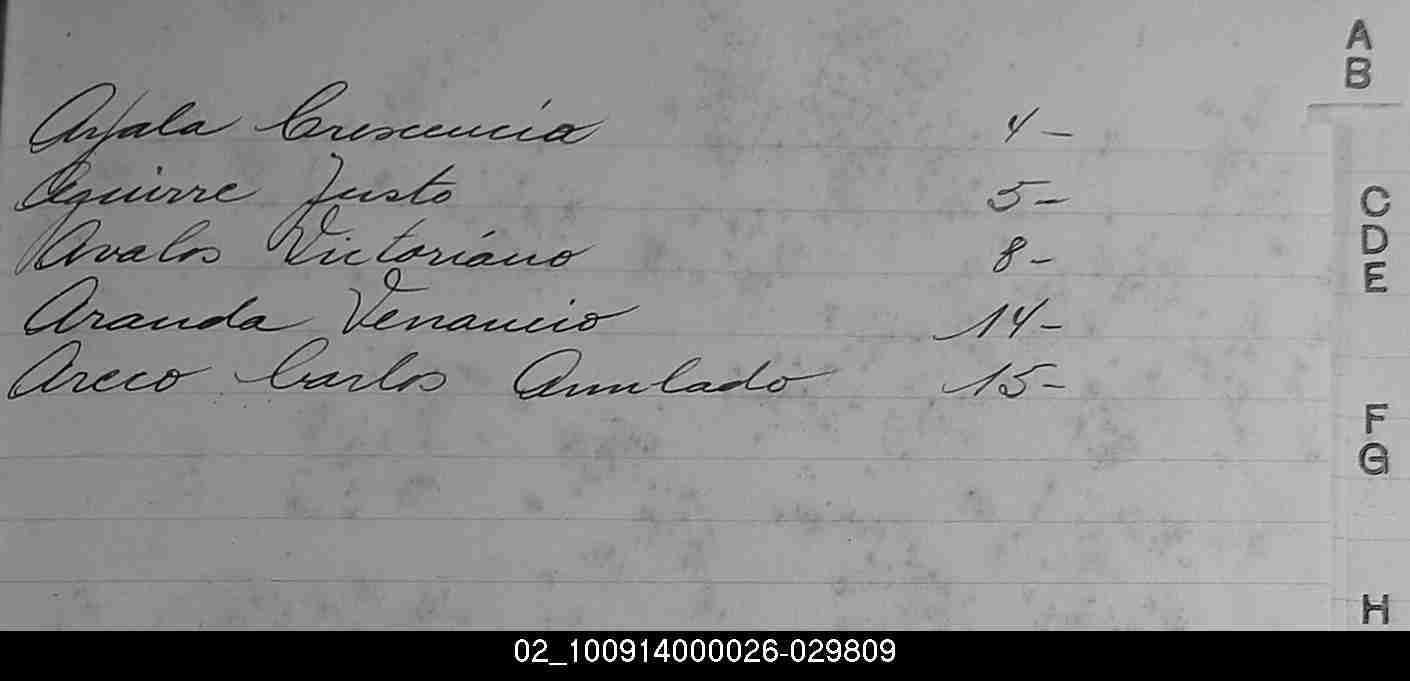 Ayala Crescencia 4-
Aguirre Justo 5-
Avalos Victoriano 8-
Aranda Venancio 14-
Areco Carlos Anulado 15-
A
B
C
D
E
F
G
H
02_100914000026-029809